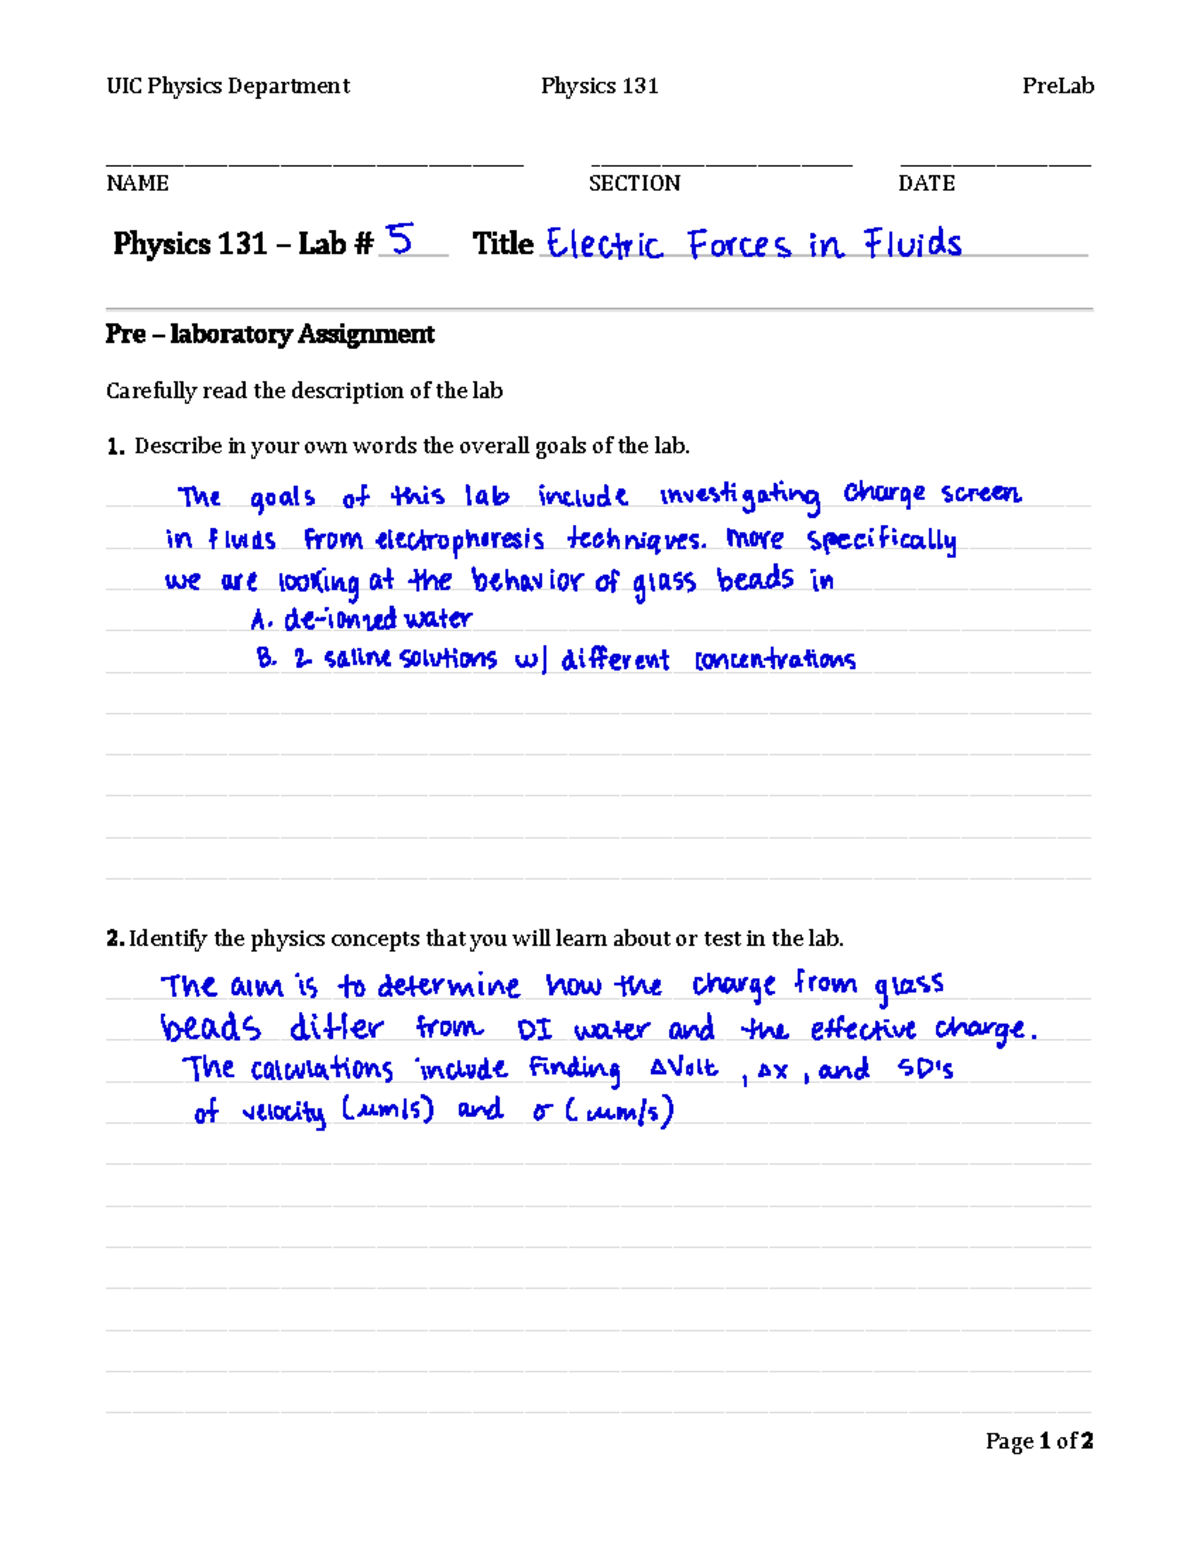 UIC Physics Department Physics 131 PreLab
NAME SECTION DATE
Physics 131 – Lab # 5 Title Electric Forces in Fluids
Pre – laboratory Assignment
Carefully read the description of the lab
1. Describe in your own words the overall goals of the lab.
The goals of this lab include investigating charge screen
in fluids from electrophoresis techniques. More specifically
we are looking at the behavior of glass beads in
A. de-ionized water
B. 2 saline solutions w/ different concentrations
2. Identify the physics concepts that you will learn about or test in the lab.
The aim is to determine how the charge from glass
beads differ from DI water and the effective charge.
The calculations include finding ΔVolt , Δx , and SD's
of velocity (μm/s) and σ (μm/s)
Page 1 of 2